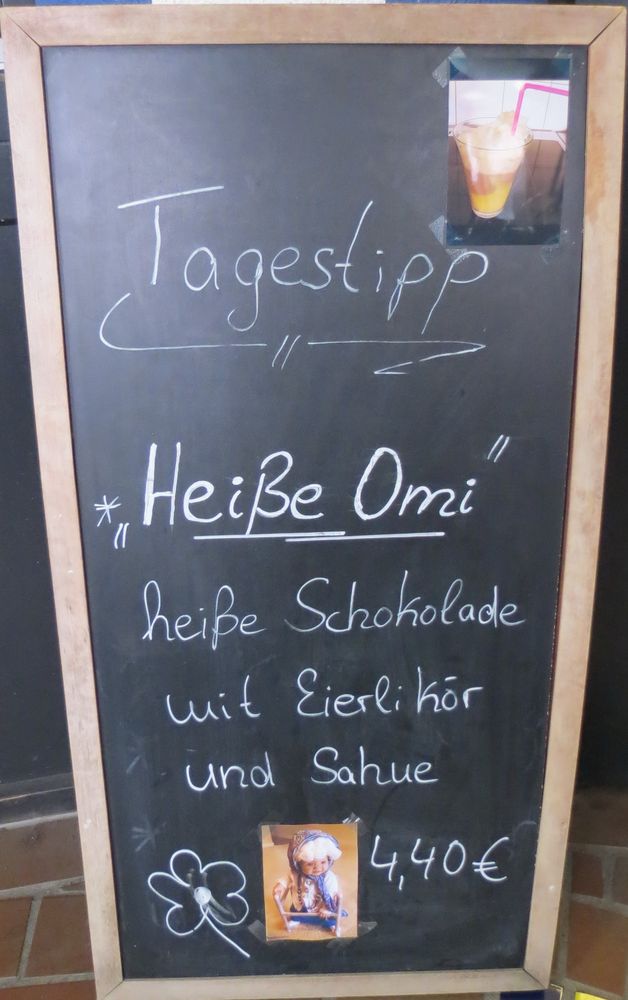 Tagestipp
*„Heiße Omi"
heiße Schokolade
mit Eierlikör
und Sahne
4,40€